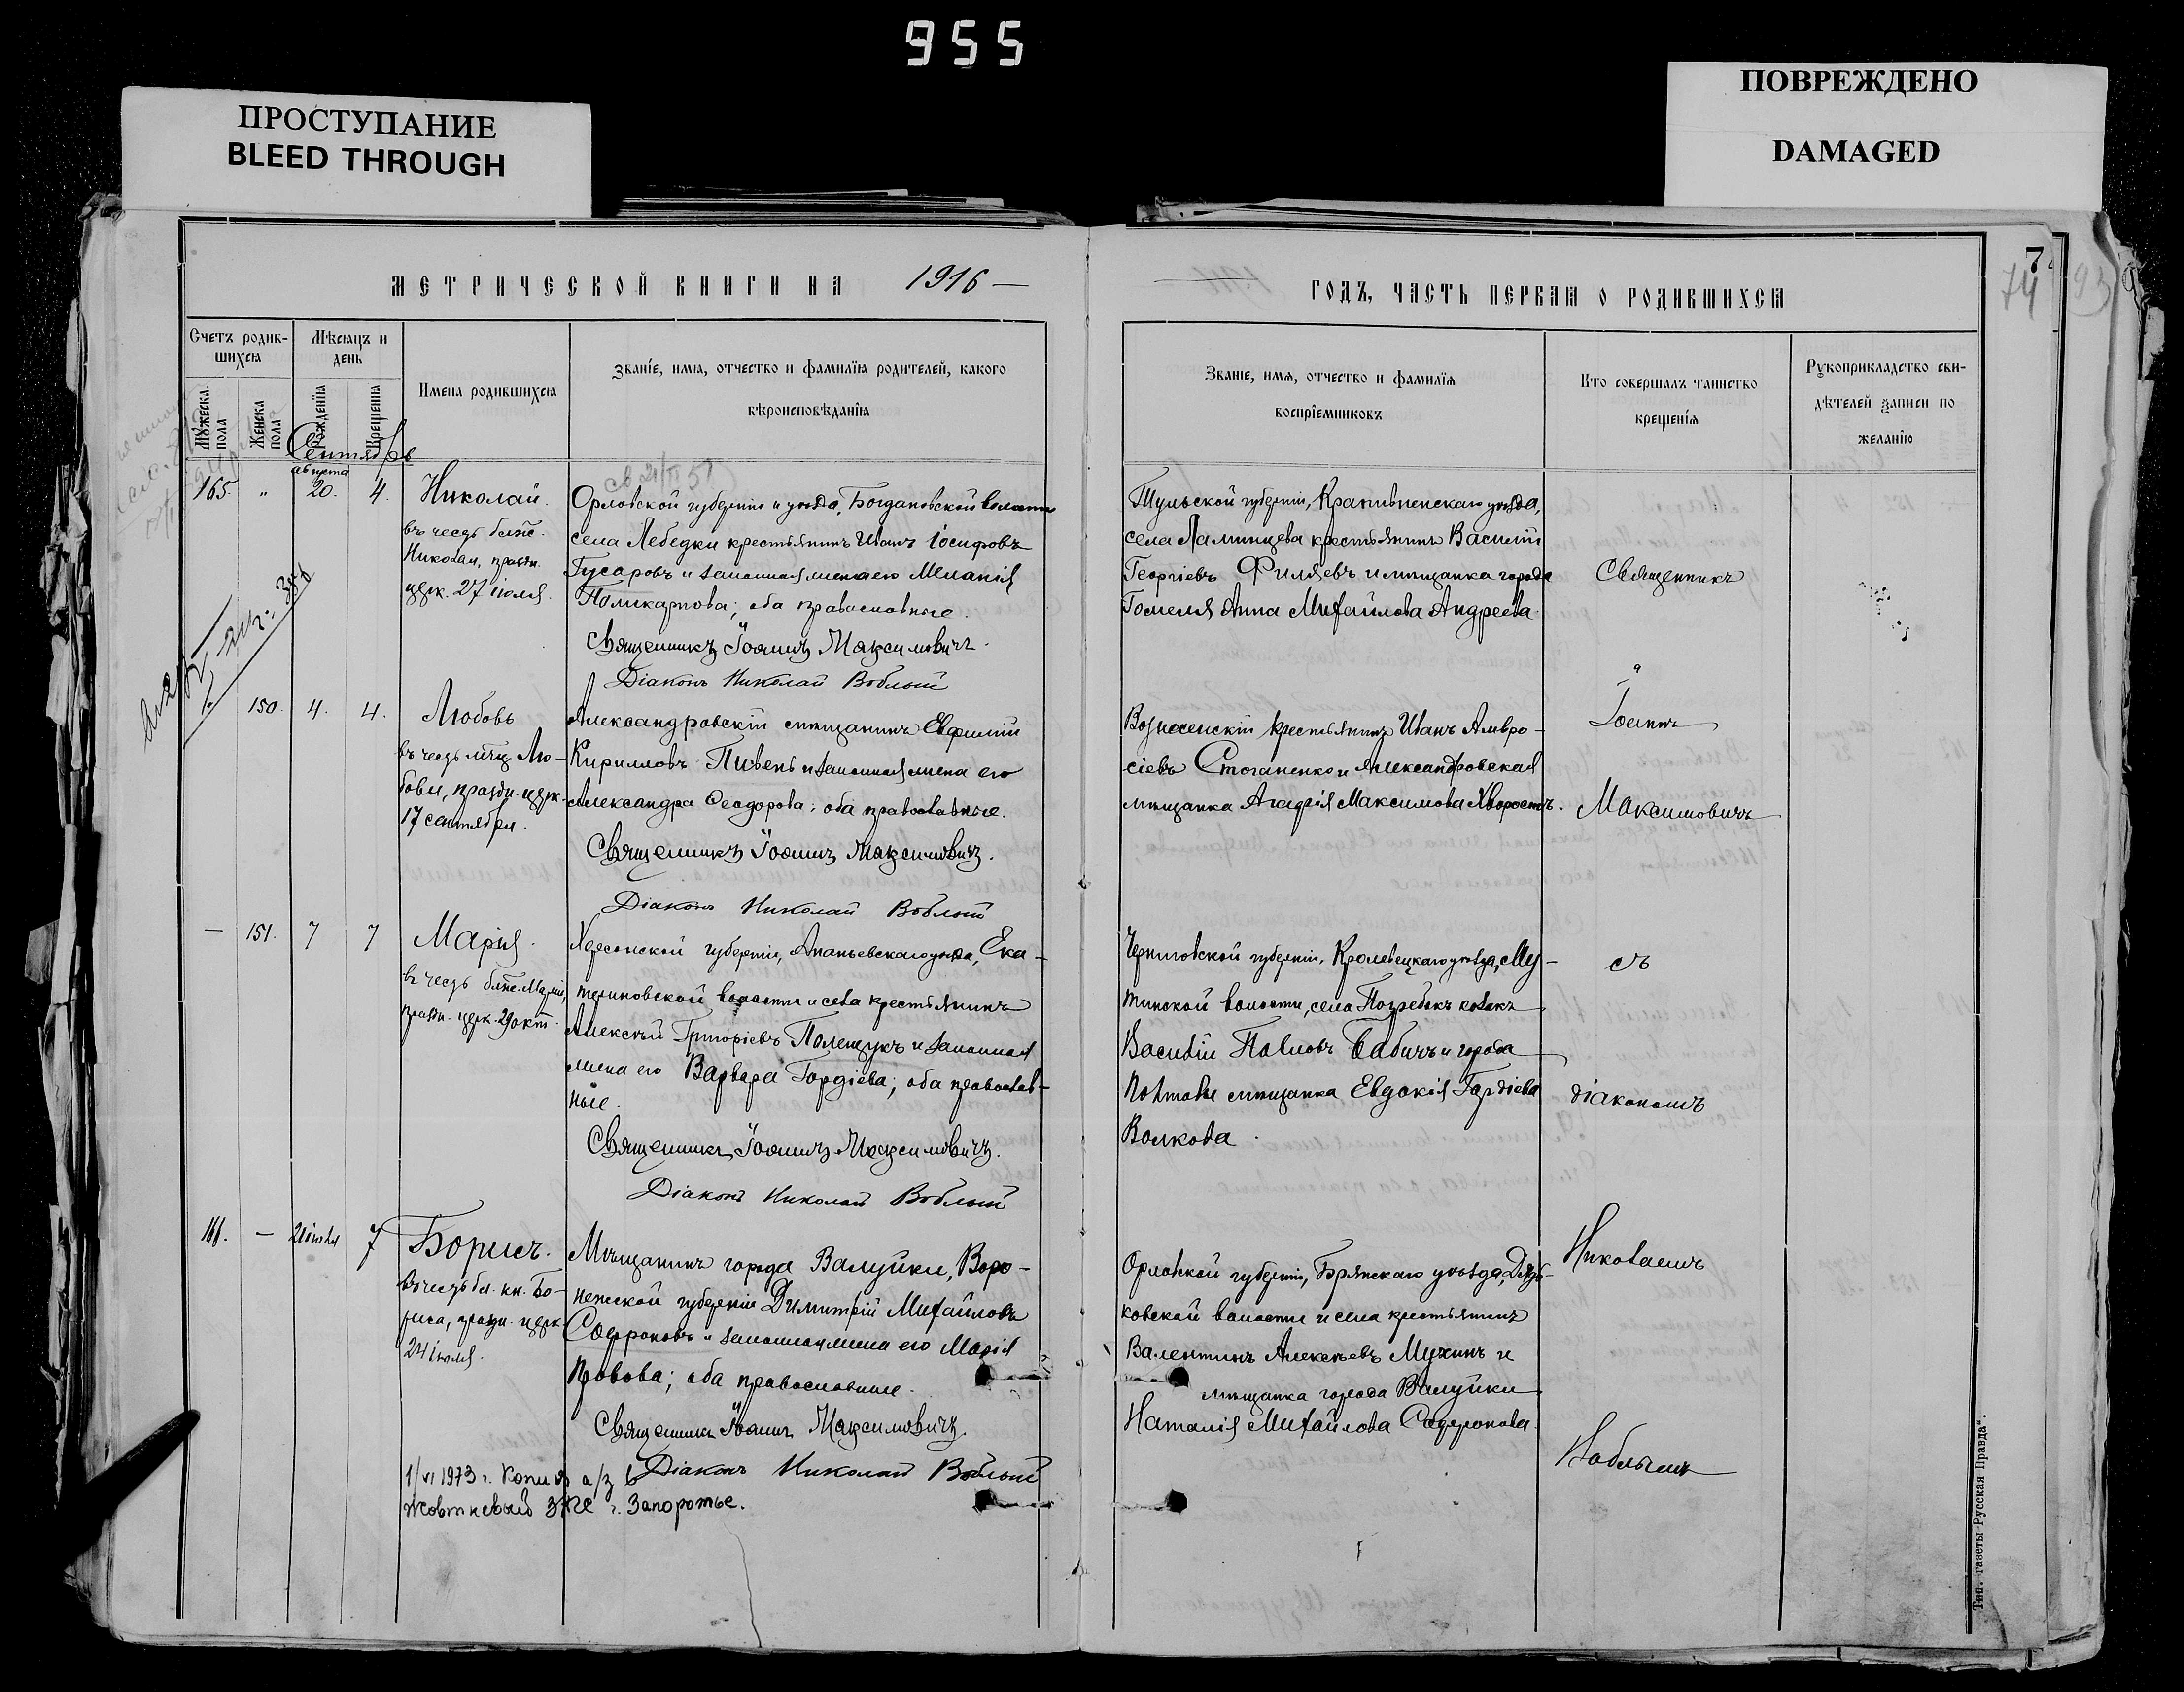 955
ПРОСТУПАНИЕ
BLEED THROUGH
ПОВРЕЖДЕНО
DAMAGED
МЕТРИЧЕСКОЙ КНИГИ НА 1916
Счетъ родив-
шихся
Мѣсяцъ и
день
Мужеска
пола
Женска
пола
Рожденія
Крещенія
Имена родившихся
Званіе, имя, отчество и фамилія родителей, какого
вѣроисповѣданія
Сентябрь
августа
165. " 20. 4.
Николай.
въ честь блж.
Николая, праздн.
церк. 27 іюля.
Орловской губерніи и уѣзда, Богдановской волости
села Лебедки крестьянинъ Иванъ Іосифовъ
Гусаровъ и законная жена его Меланія
Поликарпова; оба православные.
Священникъ Іоаннъ Максимовичъ.
Діаконъ Николай Воблый
150. 4. 4.
Любовь
въ честь мчц. Лю-
бови, праздн. церк.
17 сентября.
Александровскій мѣщанинъ Евфимій
Кирилловъ Пивень и законная жена его
Александра Ѳеодорова; оба православные.
Священникъ Іоаннъ Максимовичъ.
Діаконъ Николай Воблый
— 151. 7 7
Марія.
въ честь блж. Маріи,
праздн. церк. 29 окт.
Херсонской губерніи, Ананьевскаго уѣзда, Ека-
териновской волости и села крестьянинъ
Алексѣй Григоріевъ Полещукъ и законная
жена его Варвара Гордіева; оба православ-
ные.
Священникъ Іоаннъ Максимовичъ.
Діаконъ Николай Воблый
166. — 21 іюля 7
Борисъ.
въ честь бл. кн. Бо-
риса, праздн. церк.
24 іюля.
Мѣщанинъ города Валуйки, Воро-
нежской губерніи Димитрій Михайловъ
Софроновъ и законная жена его Марія
оба православные.
Священникъ Іоаннъ Максимовичъ.
Діаконъ Николай Воблый
1/VI 1973 г. Копия а/з в
Жовтневый ЗАГС г. Запорожье.
ГОДЪ, ЧАСТЬ ПЕРВАЯ О РОДИВШИХСЯ
74
Званіе, имя, отчество и фамилія
воспріемниковъ
Кто совершалъ таинство
крещенія
Рукоприкладство сви-
дѣтелей записи по
желанію
Тульской губерніи, Крапивенскаго уѣзда,
села крестьянинъ Василій
Георгіевъ Филяевъ и мѣщанка города
Гомеля Анна Михайлова Андреева.
Вознесенскій крестьянинъ Иванъ Амвро-
сіевъ Стоганенко и Александровская
мѣщанка Агафія Максимова Хворостъ.
Черниговской губерніи, Кролевецкаго уѣзда, Му-
тинской волости, села Погребокъ козакъ
Василій Павловъ Бабичъ и города
Полтавы мѣщанка Евдокія Гордіева
Волкова.
Орловской губерніи, Брянскаго уѣзда, Дядь-
ковской волости и села крестьянинъ
Валентинъ Алексѣевъ Мухинъ и
мѣщанка города Валуйки
Наталія Михайлова Софронова.
Священникъ
Іоаннъ
Максимовичъ
съ
діакономъ
Николаемъ
Воблымъ
Тип. газеты „Русская Правда“.